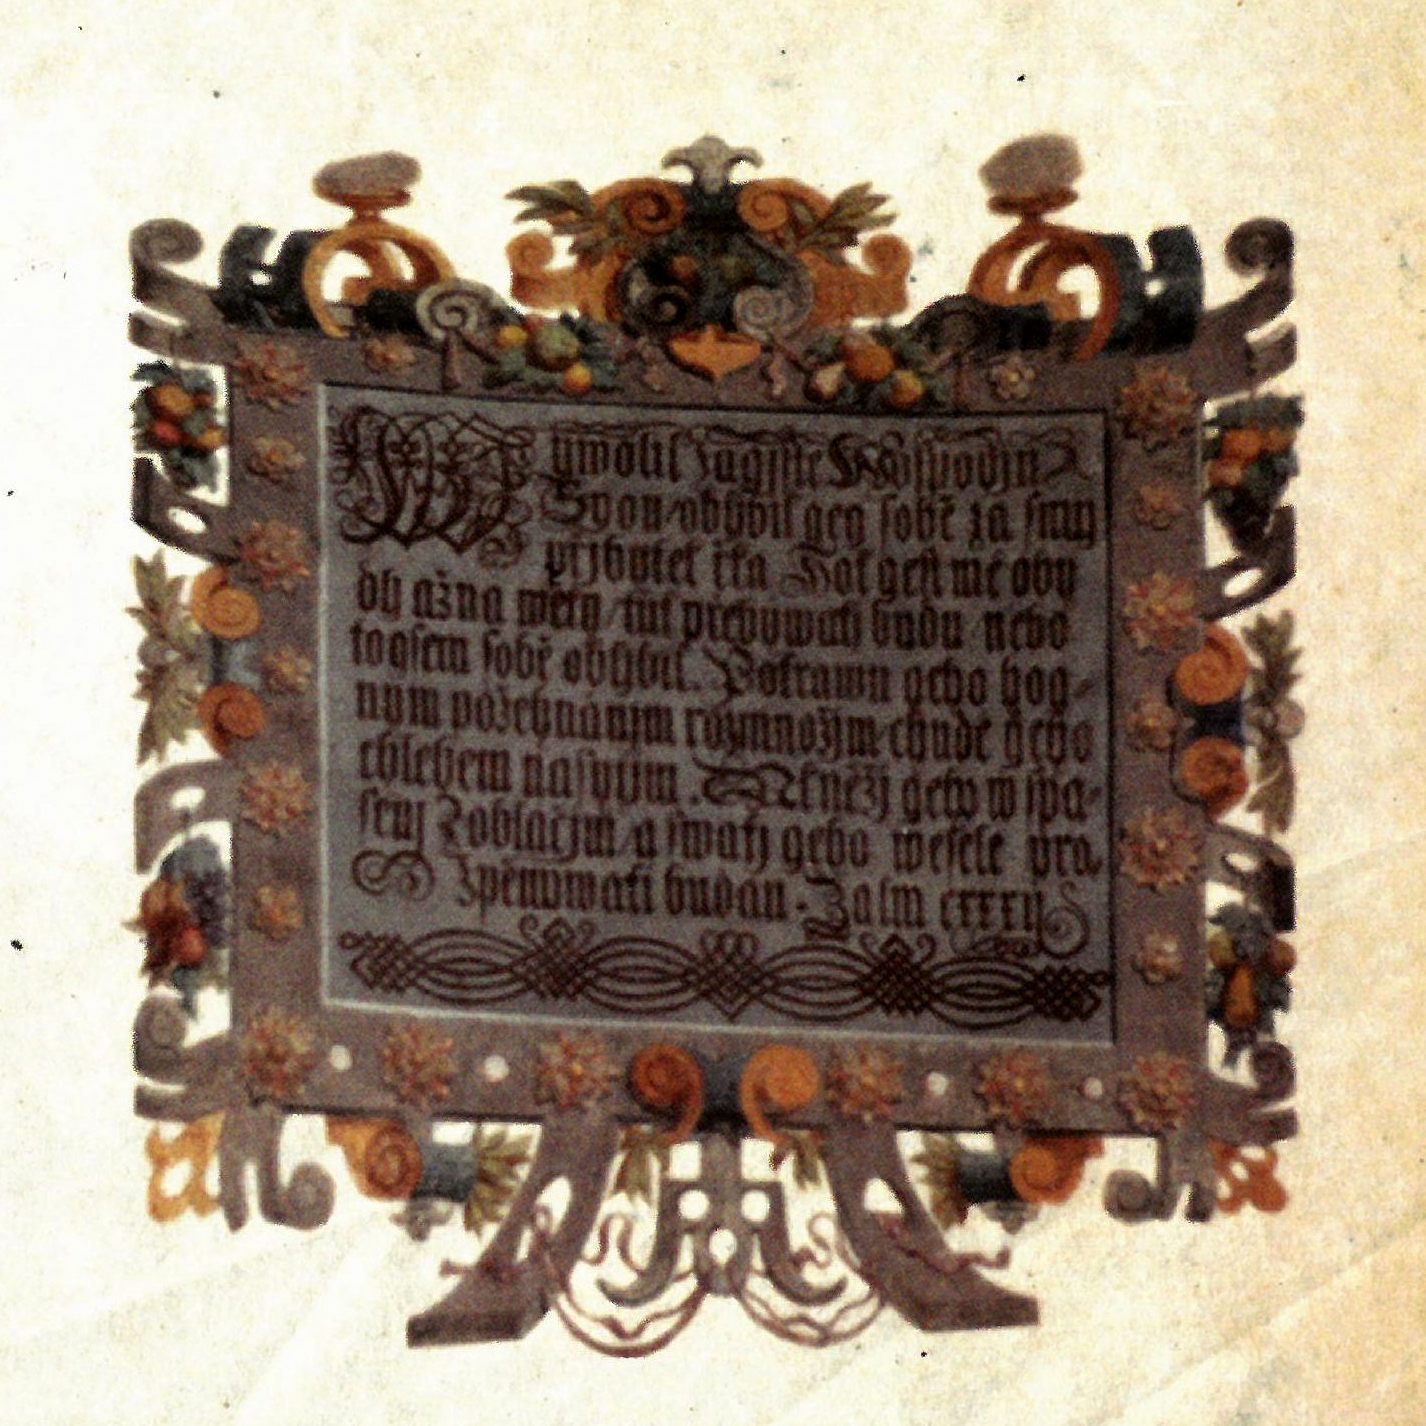 Wywolil zagiste Hospodin
Syon / obybil geg sobě za swug
přzjbytek řka Toť gest mé oby
dlj až na wěky / tuť přebywati budu / nebo
toqsem sobě obljbil. Potrawu geho hog-
nym požehnanjm rozmnožjm chudé geho
chlebem nasytjm. A kněžj geho w spa-
senj zoblačjm / a swatj geho wesele pro
zpěwowati budau. Žalm cxxxij